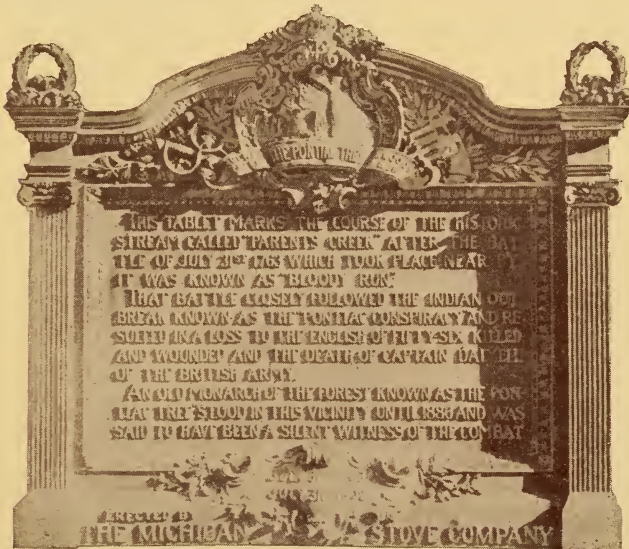 THE PONTIAC TREE
THIS TABLET MARKS THE COURSE OF THE HISTORIC
STREAM CALLED "PARENTS CREEK" AFTER THE BAT
TLE OF JULY 31ST 1763 WHICH TOOK PLACE NEAR BY
IT WAS KNOWN AS "BLOODY RUN".
THAT BATTLE CLOSELY FOLLOWED THE INDIAN OUT
BREAK KNOWN AS THE PONTIAC CONSPIRACY AND RE
SULTED IN A LOSS TO THE ENGLISH OF FIFTY-SIX KILLED
AND WOUNDED AND THE DEATH OF CAPTAIN DALZELL
OF THE BRITISH ARMY.
AN OLD MONARCH OF THE FOREST KNOWN AS THE "PON
TIAC TREE" STOOD IN THIS VICINITY UNTIL 1886 AND WAS
SAID TO HAVE BEEN A SILENT WITNESS OF THE COMBAT
ERECTED BY
THE MICHIGAN STOVE COMPANY